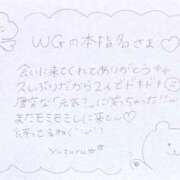 WGの本指名さま♡
会いに来てくれてありがとう
久しぶりだから2人でドキドキ
唐突な「元気?」に笑っちゃった!!
またモミモミしに来てし♡
待ってるね
yuzuru